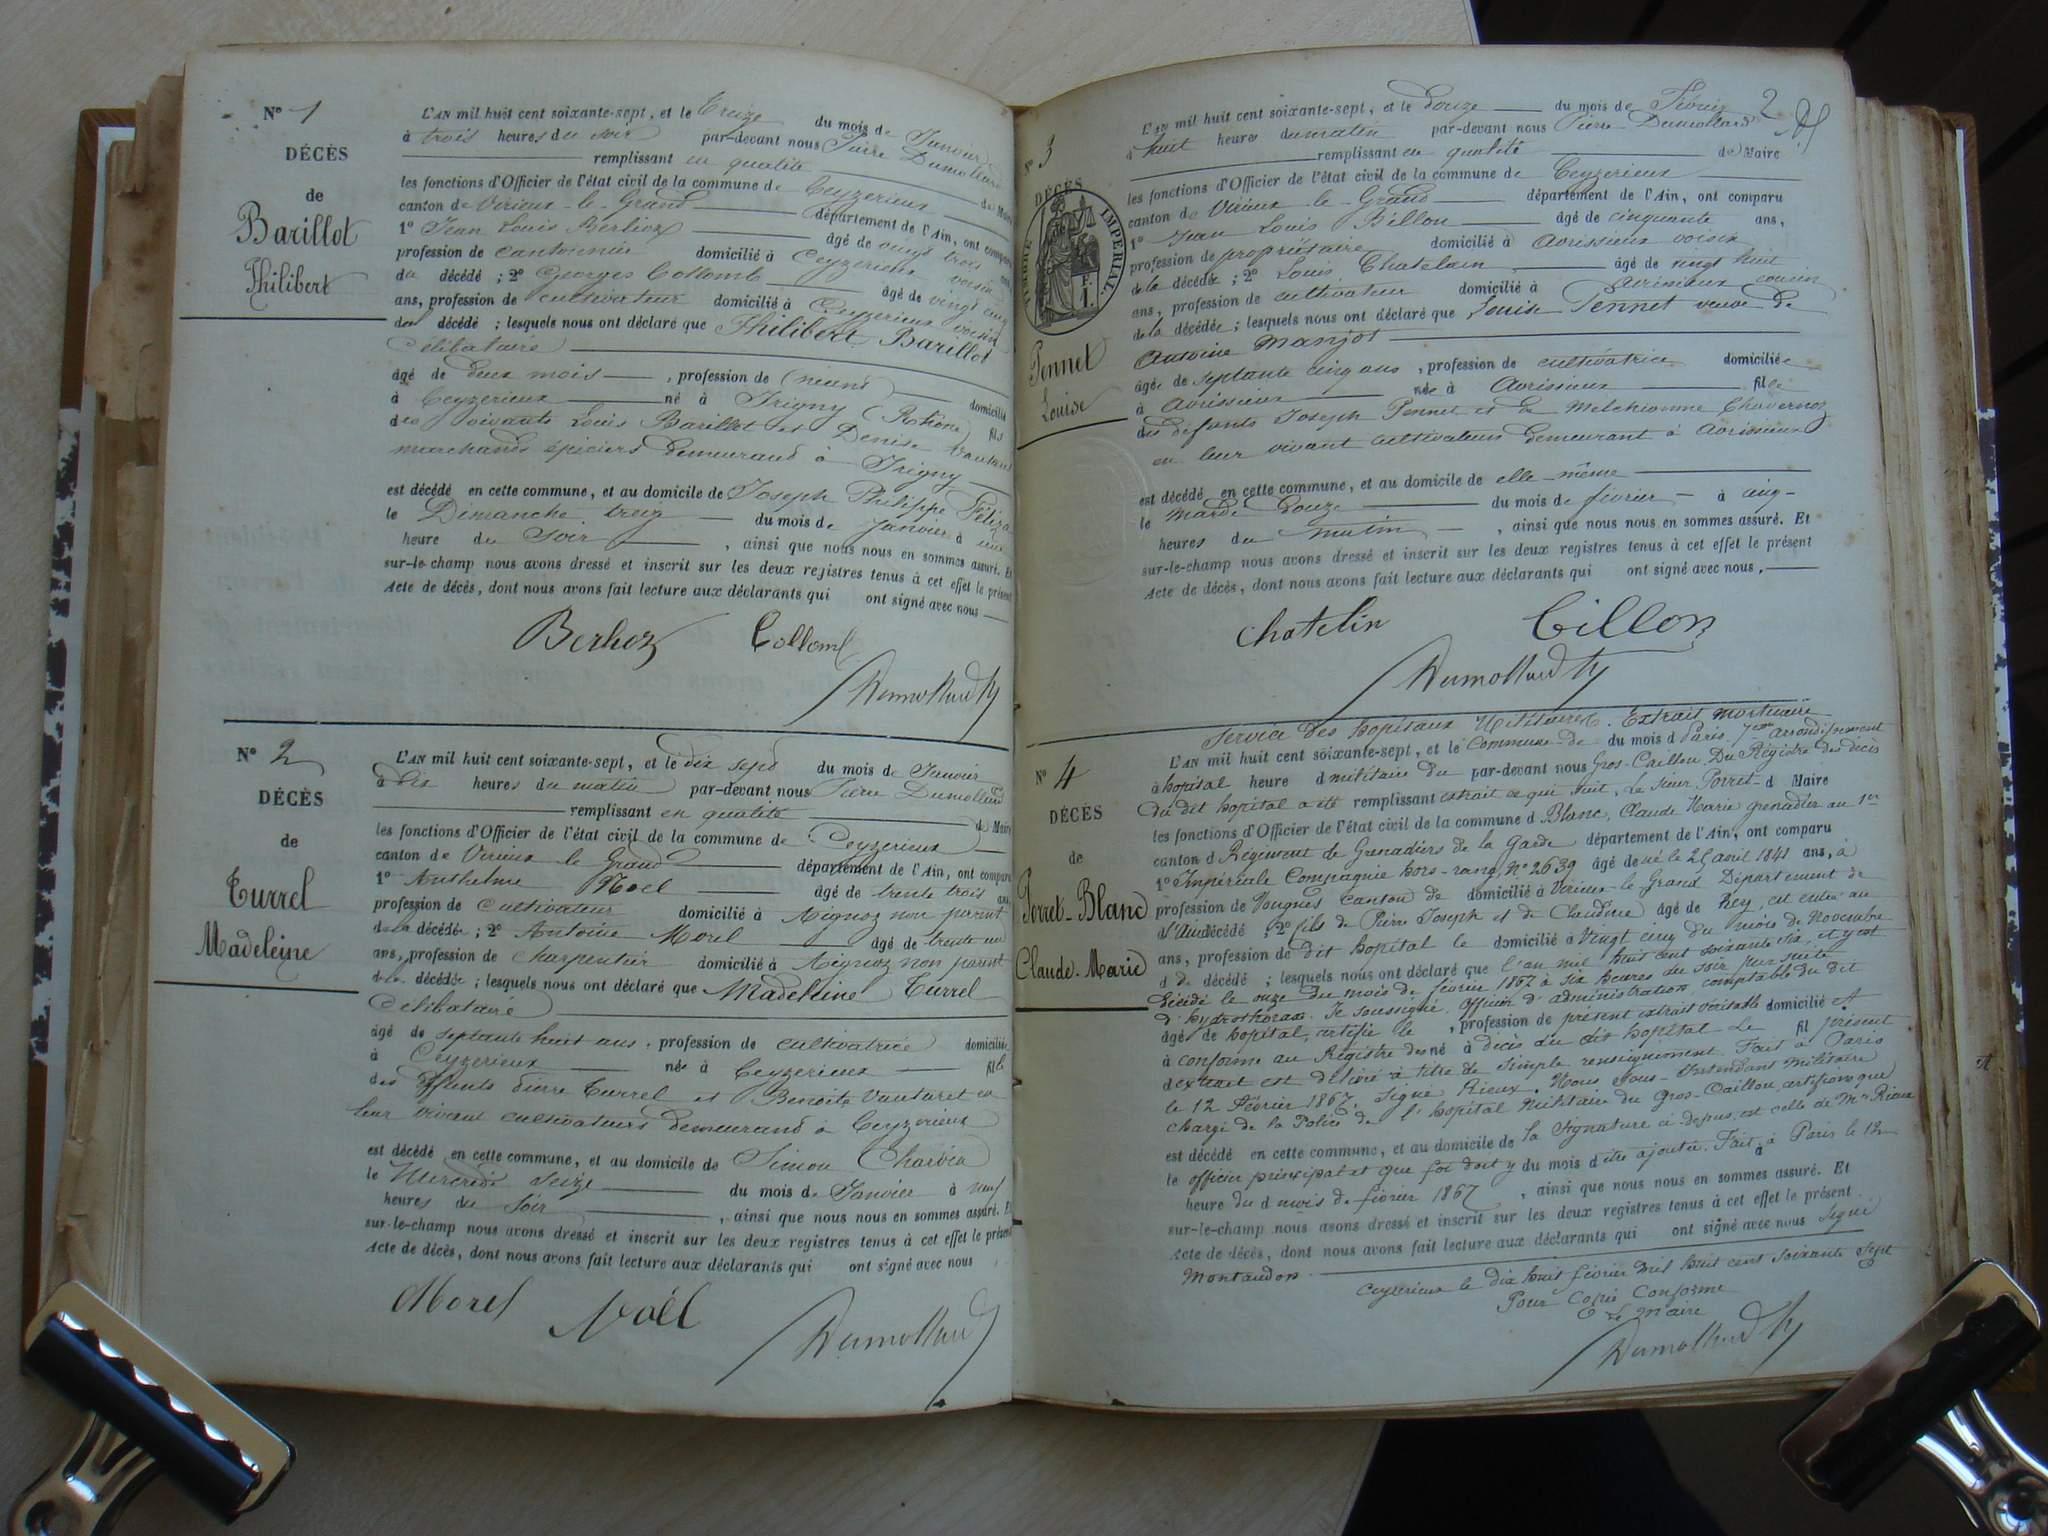 N° 1
DÉCÈS
de
Barillot
Philibert
L'AN mil huit cent soixante-sept, et le Treize du mois de Janvier
à trois heures du soir par-devant nous Pierre Dumollard
remplissant en qualité de Maire
les fonctions d'Officier de l'état civil de la commune de Ceyzerieux
canton de Virieux-le-Grand département de l'Ain, ont comparu
1° Jean Louis Berlioz âgé de vingt trois ans,
profession de cantonnier domicilié à Ceyzerieux voisin
du décédé ; 2° Georges Collomb âgé de vingt cinq
ans, profession de cultivateur domicilié à Ceyzerieux voisin
du décédé ; lesquels nous ont déclaré que Philibert Barillot
Célibataire
âgé de deux mois, profession de (néant) domicilié
à Ceyzerieux né à Irigny (Rhône) fils
des vivants Louis Barillot et Denise
marchands épiciers demeurand à Irigny
est décédé en cette commune, et au domicile de Joseph Philippe
le Dimanche treize du mois de janvier à une
heure du Soir, ainsi que nous nous en sommes assuré. Et
sur-le-champ nous avons dressé et inscrit sur les deux registres tenus à cet effet le présent
Acte de décès, dont nous avons fait lecture aux déclarants qui ont signé avec nous
Berlioz Collomb
Dumollard
N° 2
DÉCÈS
de
Turrel
Madeleine
L'AN mil huit cent soixante-sept, et le dix sept du mois de Janvier
à dix heures du matin par-devant nous Pierre Dumollard
remplissant en qualité de Maire
les fonctions d'Officier de l'état civil de la commune de Ceyzerieux
canton de Virieux le Grand département de l'Ain, ont comparu
1° Anthelme Noel âgé de trente trois ans,
profession de Cultivateur domicilié à Aignoz non parent
de la décédée ; 2° Antoine Morel âgé de trente un
ans, profession de Charpentier domicilié à Aignoz non parent
de la décédée ; lesquels nous ont déclaré que Madeleine Turrel
Célibataire
âgé de septante huit ans, profession de cultivatrice domiciliée
à Ceyzerieux née à Ceyzerieux fille
des défunts Pierre Turrel et Benoite Vautaret en
leur vivant cultivateurs demeurand à Ceyzerieux
est décédé en cette commune, et au domicile de Simon Charvin
le Mercredi Seize du mois de Janvier à neuf
heures du Soir, ainsi que nous nous en sommes assuré. Et
sur-le-champ nous avons dressé et inscrit sur les deux registres tenus à cet effet le présent
Acte de décès, dont nous avons fait lecture aux déclarants qui ont signé avec nous
Morel Noël
Dumollard
2
N° 3
DÉCÈS
TIMBRE IMPÉRIAL
1 F.
Pennet
Louise
L'AN mil huit cent soixante-sept, et le douze du mois de Février
à huit heures du matin par-devant nous Pierre Dumollard
remplissant en qualité de Maire
les fonctions d'Officier de l'état civil de la commune de Ceyzerieux
canton de Virieux-le-Grand département de l'Ain, ont comparu
1° Jean Louis Billon âgé de cinquante ans,
profession de propriétaire domicilié à Avrissieux voisin
de la décédée ; 2° Louis Chatelain âgé de vingt huit
ans, profession de cultivateur domicilié à Avrissieux cousin
de la décédée ; lesquels nous ont déclaré que Louise Pennet veuve de
Antoine Manjot
âgée de septante cinq ans, profession de cultivatrice domiciliée
à Avrissieux née à Avrissieux fille
des défunts Joseph Pennet et de Melchionne Chavernoz
en leur vivant cultivateurs demeurant à Avrissieux
est décédé en cette commune, et au domicile de elle-même
le Mardi Douze du mois de février à cinq
heures du matin, ainsi que nous nous en sommes assuré. Et
sur-le-champ nous avons dressé et inscrit sur les deux registres tenus à cet effet le présent
Acte de décès, dont nous avons fait lecture aux déclarants qui ont signé avec nous,
Chatelin Billon
Dumollard
N° 4
DÉCÈS
de
Perret-Blanc
Claude-Marie
Service des hopitaux Militaires. Extrait mortuaire
L'AN mil huit cent soixante-sept, et le Commune de du mois d Paris, 7me arrondissement
à hopital heure d militaire du par-devant nous Gros-Caillou. Du Régistre des décès
du dit hopital a été remplissant extrait ce qui suit, Le Sieur Perret- d Maire
les fonctions d'Officier de l'état civil de la commune d Blanc, Claude Marie grenadier au 1er
canton d Régiment de Grenadiers de la Garde département de l'Ain, ont comparu
1° Impériale Compagnie hors-rang, N° 2639 âgé de né le 25 avril 1841 ans, à
profession de Vougnes canton de domicilié à Virieux-le Grand Département de
l'Ain décédé ; 2° fils de Pierre Joseph et de Claudine âgé de Rey, est entré au
ans, profession de dit hopital le domicilié à Vingt cinq du mois de Novembre
d de décédé ; lesquels nous ont déclaré que l'an mil huit cent soixante six, et y est
décédé le onze du mois de février 1867 à six heures du soir par suite
d'hydrothorax. Je soussigné, Officier d'administration comptable du dit
âgé de hopital, certifie le, profession de présent extrait véritable domicilié et
à conforme au Régistre des né à décès du dit hopital Le fil présent
d extrait est délivré à titre de simple renseignement. Fait à Paris
le 12 Février 1867. Signé Rieux. Nous Sous-Intendant militaire
chargé de la Police de l'hopital Militaire du Gros-Caillou, certifions que
est décédé en cette commune, et au domicile de la signature ci-dessus est celle de Mr Rieux
le officier principal et que foi doit y du mois d être ajoutée. Fait à Paris le 12
heure du d mois de février 1867, ainsi que nous nous en sommes assuré. Et
sur-le-champ nous avons dressé et inscrit sur les deux registres tenus à cet effet le présent
Acte de décès, dont nous avons fait lecture aux déclarants qui ont signé avec nous Signé
Montaudon
Ceyzerieux le dix huit février mil huit cent soixante sept
Pour Copie Conforme
Le Maire
Dumollard